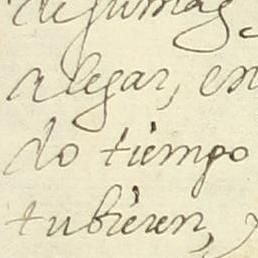 alegar, en
do tiempo
tubieren, y